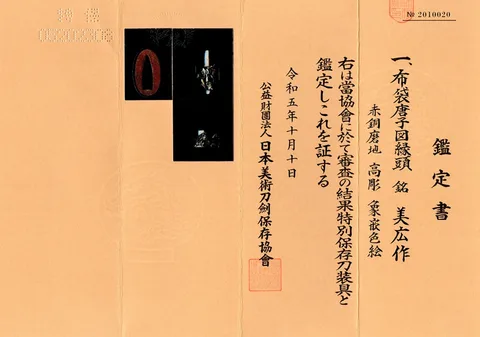 № 2010020
鑑定書
一、布袋唐子図縁頭 銘 美広作
赤銅磨地 高彫 象嵌色絵
右は當協會に於て審査の結果特別保存刀装具と
鑑定しこれを証する
令和五年十月十日
公益財團法人 日本美術刀劍保存協會